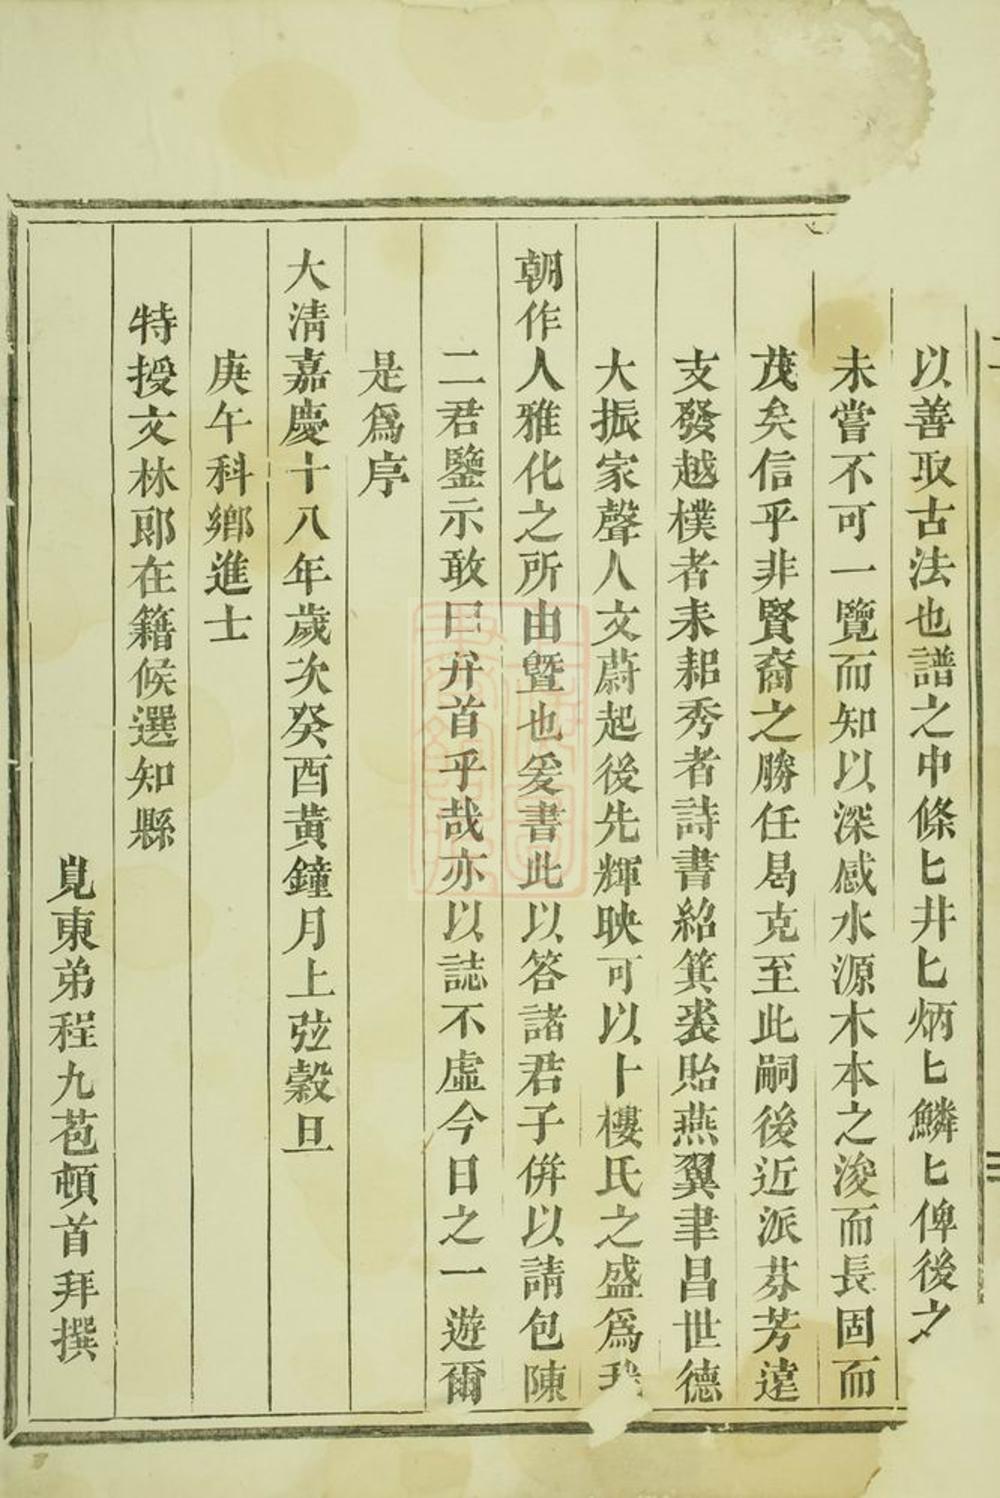 以善取古法也譜之中條匕井匕炳匕鱗匕俾後之
未嘗不可一覽而知以深感水源木本之浚而長固而
茂矣信乎非賢裔之勝任曷克至此嗣後近派芬芳遠
支發越樸者耒耜秀者詩書紹箕裘貽燕翼聿昌世德
大振家聲人文蔚起後先輝映可以卜樓氏之盛爲我
朝作人雅化之所由暨也爰書此以答諸君子併以請包陳
二君鑒示敢曰弁首乎哉亦以誌不虛今日之一遊爾
是爲序
大清嘉慶十八年歲次癸酉黃鐘月上弦穀旦
庚午科鄉進士
特授文林郎在籍候選知縣
峴東弟程九苞頓首拜撰